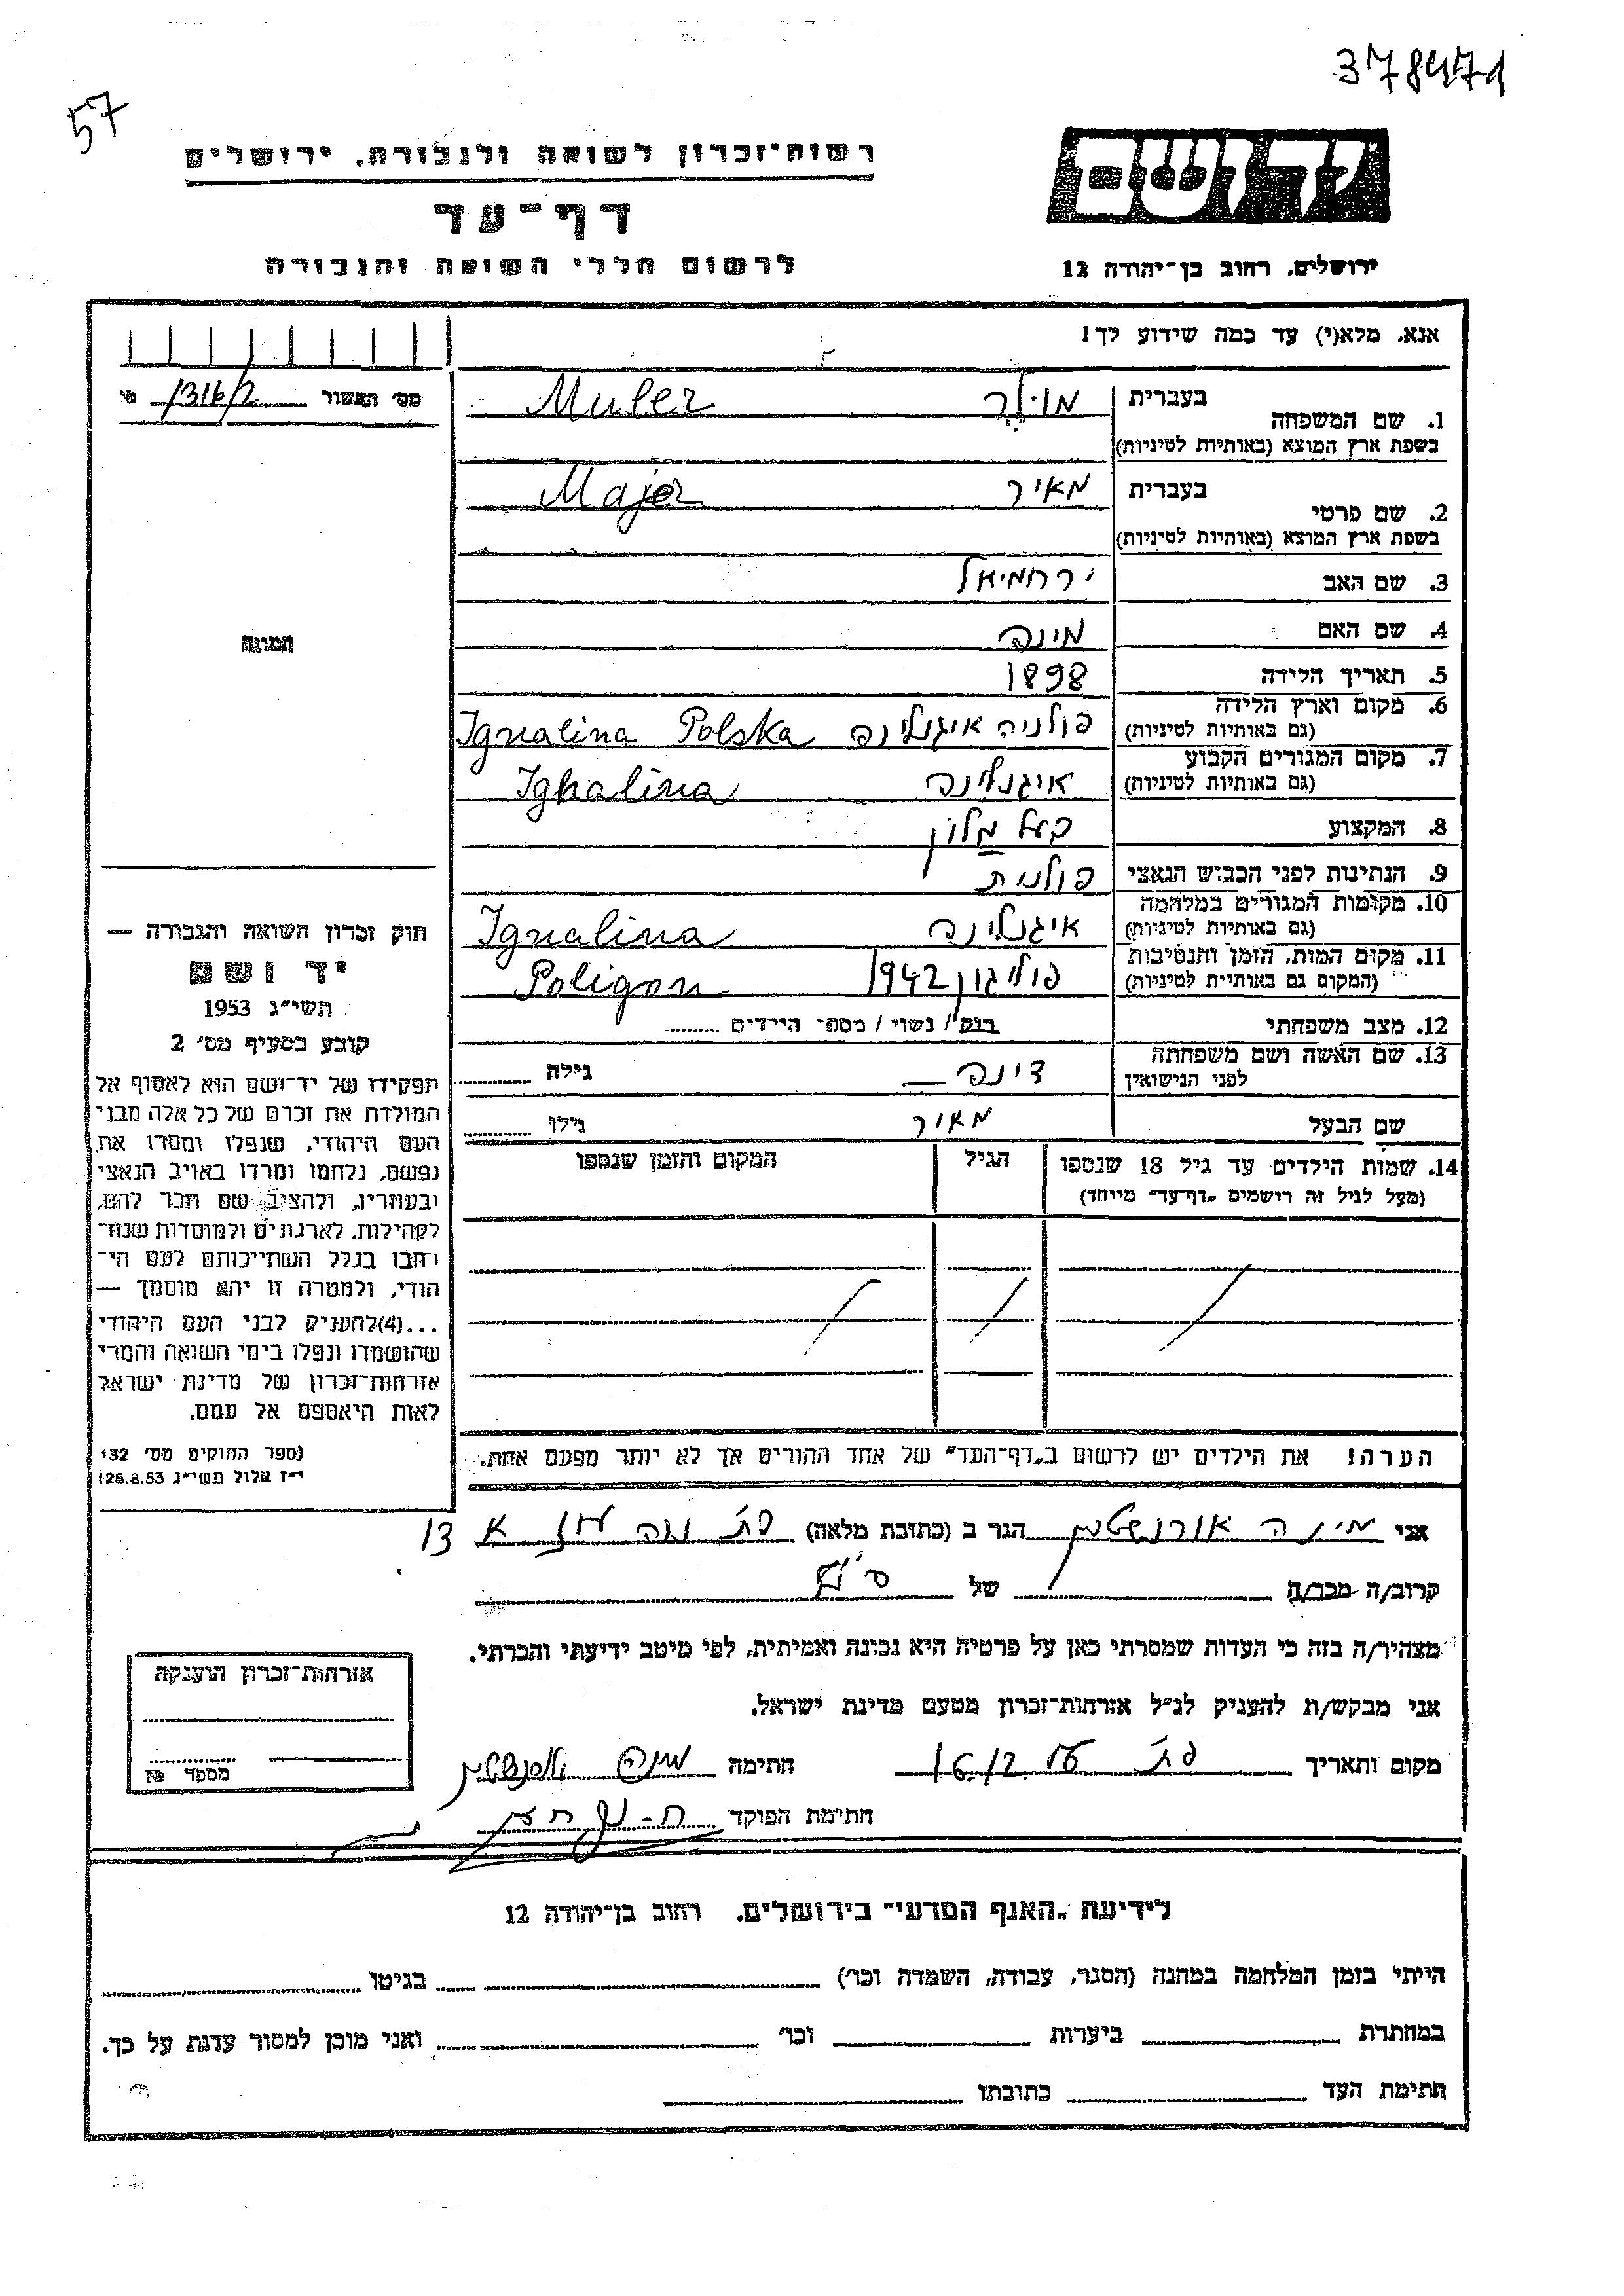 378471
57
רשות־זכרון לשואה ולגבורה, ירושלים
יד ושם
דף־עד
לרשום חללי השואה והגבורה
ירושלים, רחוב בן־יהודה 12
אנא, מלא(י) עד כמה שידוע לך!
מס' האשור 1316/2
1. שם המשפחה בעברית מולר Muler
בשפת ארץ המוצא (באותיות לטיניות)
2. שם פרטי בעברית מאיר Majer
בשפת ארץ המוצא (באותיות לטיניות)
3. שם האב ירחמיאל
4. שם האם מינה
תמונה
5. תאריך הלידה 1898
6. מקום וארץ הלידה (גם באותיות לטיניות) פולניה איגנלינה Ignalina Polska
7. מקום המגורים הקבוע (גם באותיות לטיניות) איגנלינה Ignalina
8. המקצוע בעל מלון
9. הנתינות לפני הכבוש הנאצי פולנית
10. מקומות המגורים במלחמה (גם באותיות לטיניות) איגנלינה Ignalina
11. מקום המות, הזמן והנסיבות (המקום גם באותיות לטיניות) פוליגון 1942 Poligon
12. מצב משפחתי רווק / נשוי / מספר הילדים
13. שם האשה ושם משפחתה לפני הנישואין דינה — גילה
שם הבעל מאיר גילו
14. שמות הילדים עד גיל 18 שנספו הגיל המקום והזמן שנספו
(מעל לגיל זה רושמים „דף־עד" מיוחד)
הערה! את הילדים יש לרשום ב„דף־העד" של אחד ההורים אך לא יותר מפעם אחת.
חוק זכרון השואה והגבורה —
יד ושם
תשי"ג 1953
קובע בסעיף מס' 2
תפקידו של יד־ושם הוא לאסוף אל
המולדת את זכרם של כל אלה מבני
העם היהודי, שנפלו ומסרו את
נפשם, נלחמו ומרדו באויב הנאצי
ובעוזריו, ולהציב שם וזכר להם,
לקהילות, לארגונים ולמוסדות שנח־
רבו בגלל השתייכותם לעם הי־
הודי, ולמטרה זו יהא מוסמך —
...(4)להעניק לבני העם היהודי
שהושמדו ונפלו בימי השואה והמרי
אזרחות־זכרון של מדינת ישראל
לאות היאספם אל עמם.
(ספר החוקים מס' 132
י"ז אלול תשי"ג 28.8.53)
אני מינה אורנשטין הגר ב (כתובת מלאה) פת נוה חן א 13
קרוב/ה מכר/ה של
מצהיר/ה בזה כי העדות שמסרתי כאן על פרטיה היא נכונה ואמיתית, לפי מיטב ידיעתי והכרתי.
אני מבקש/ת להעניק לנ"ל אזרחות־זכרון מטעם מדינת ישראל.
מקום ותאריך 16/12 חתימה
חתימת הפוקד
אזרחות־זכרון הוענקה
מספר №
לידיעת „האגף המדעי" בירושלים, רחוב בן־יהודה 12
הייתי בזמן המלחמה במחנה (הסגר, עבודה, השמדה וכו') בגיטו
במחתרת ביערות וכו' ואני מוכן למסור עדות על כך.
חתימת העד כתובתו